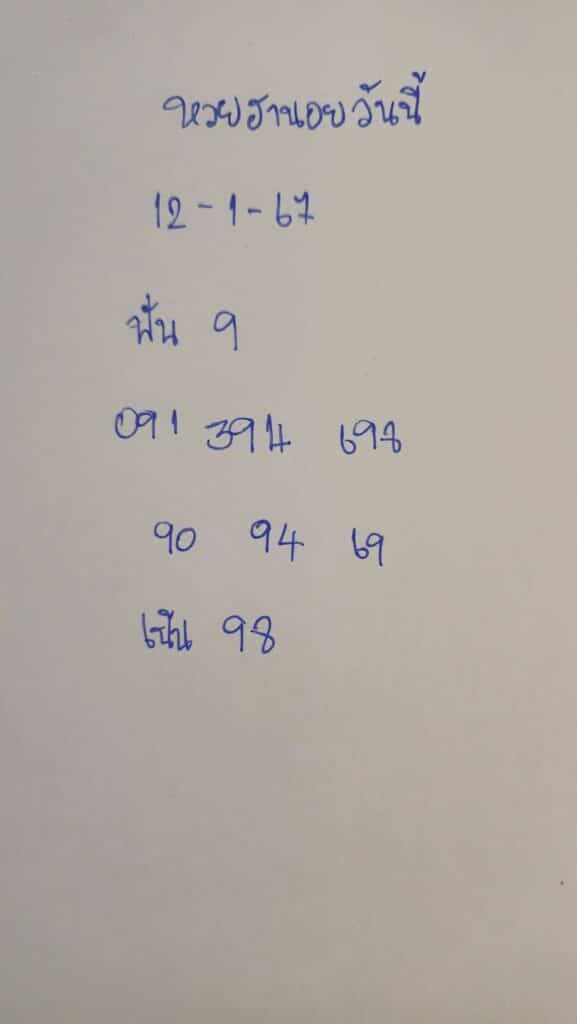 หวยฮานอยวันนี้
12-1-67
ฟัน 9
091 394 698
90 94 69
เน้น 98